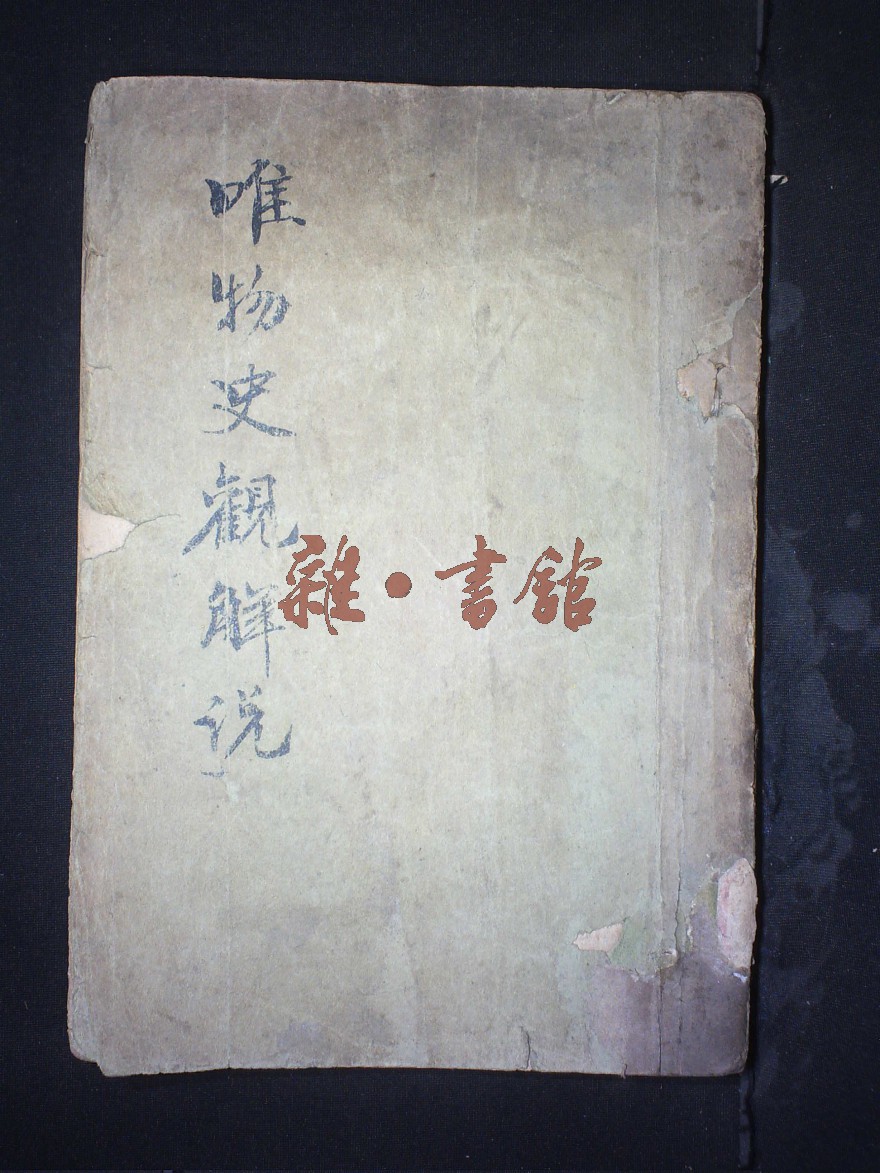 唯物史觀解说
雜·書館